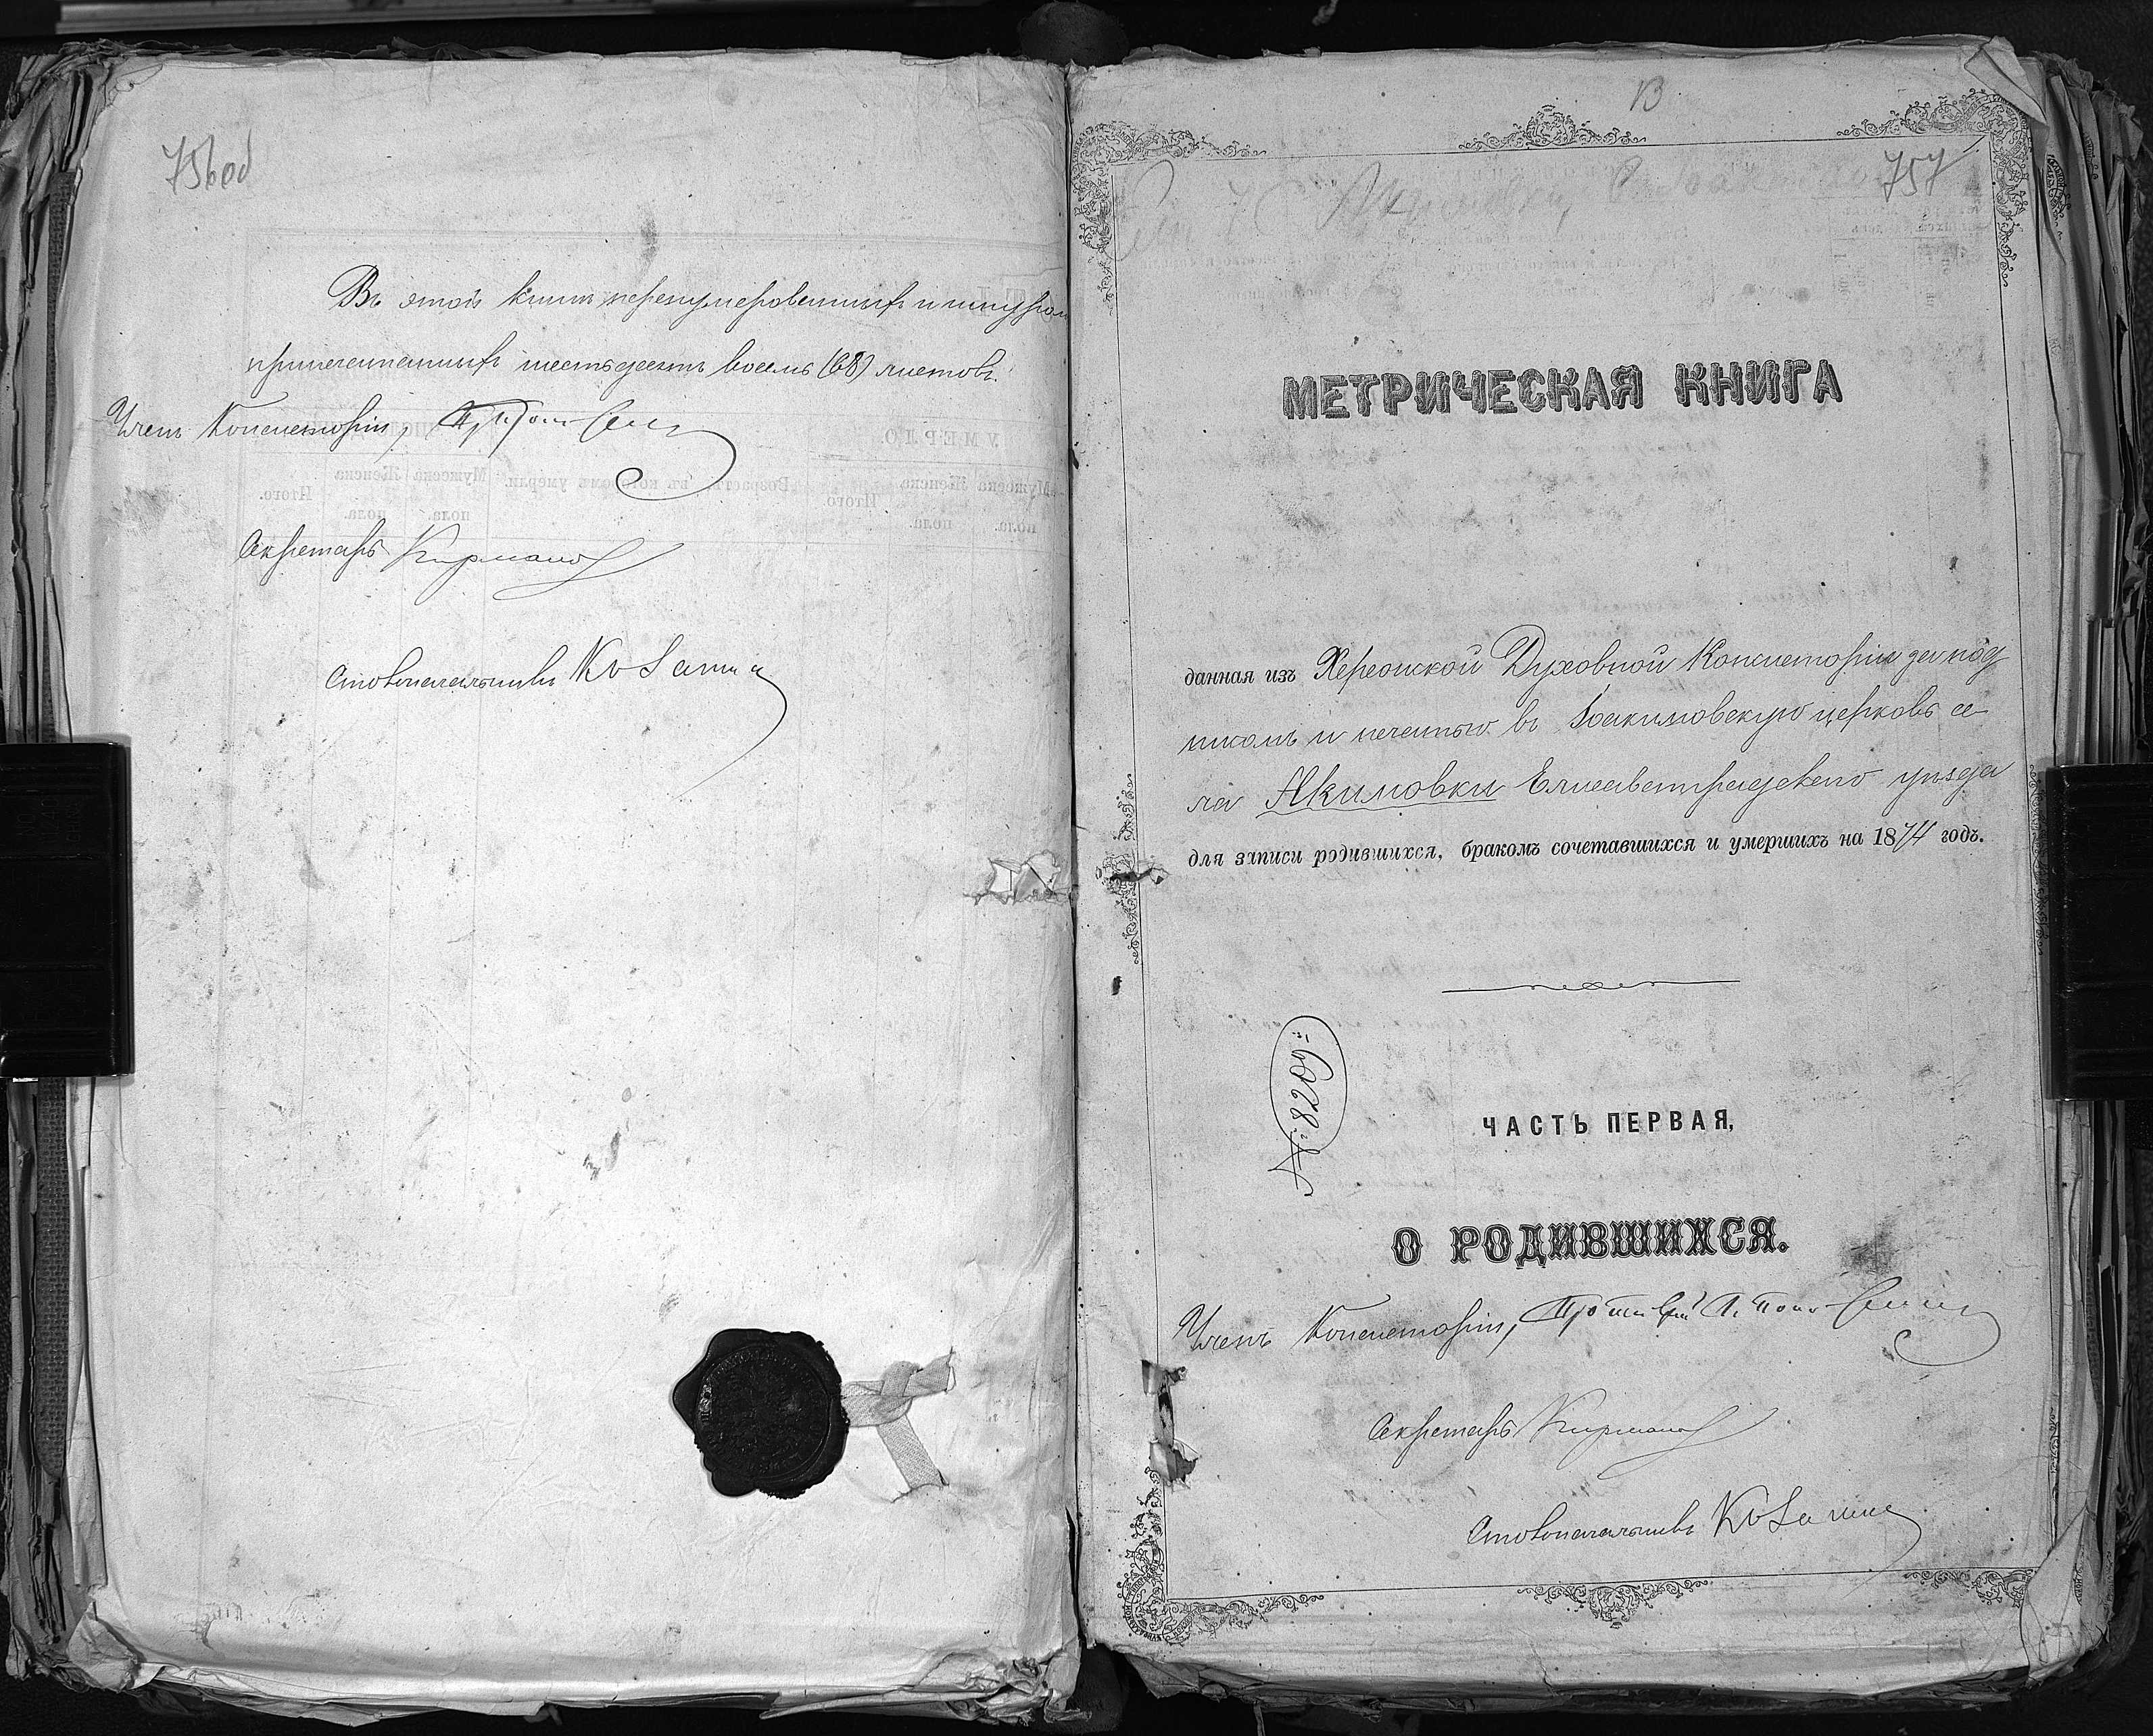 756об
Въ этой книгѣ перенумерованныхъ и шнуром
припечатанныхъ шестьдесятъ восемь (68) листовъ.
Членъ Консисторіи,
Секретарь
Столоначальникъ
13
757
МЕТРИЧЕСКАЯ КНИГА
данная изъ Херсонской Духовной Консисторіи за под
писомъ и печатью въ Іоакимовскую церковь се
ла Акимовки Елисаветградскаго уѣзда
для записи родившихся, бракомъ сочетавшихся и умершихъ на 1874 годъ.
№ 8209
ЧАСТЬ ПЕРВАЯ,
О РОДИВШИХСЯ.
Членъ Консисторіи, Протоіерей
Секретарь
Столоначальникъ